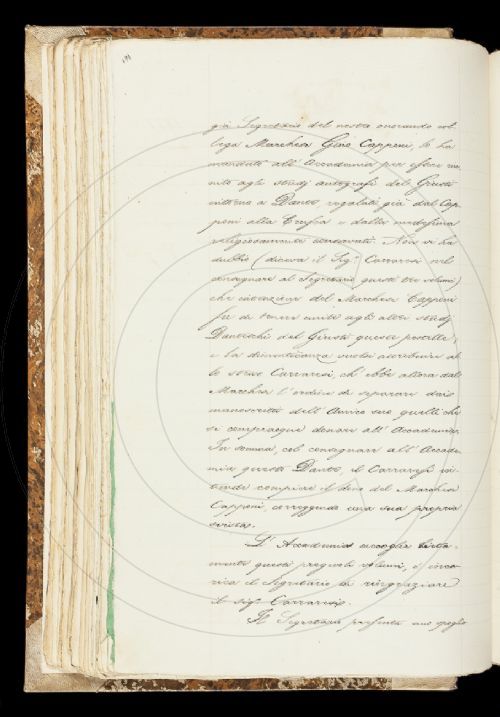 già Segretario del nostro onorando col-
lega Marchese Gino Capponi, lo ha
mandato all'Accademia per essere u-
nito agli studj autografi del Giusti
intorno a Dante regalati già dal Cap-
poni alla Crusca e dalla medesima
religiosamente conservati. Non vi ha
dubbio (diceva il Sig.r Carraresi nel
consegnare al Segretario questi tre volumi)
che intenzione del Marchese Capponi
fu di tenere uniti agli altri studj
Danteschi del Giusti queste postille;
e la dimenticanza vuolsi attribuire al-
lo stesso Carraresi, ch'ebbe allora dal
Marchese l'ordine di separare dai
manoscritti dell'Amico suo quelli che
si compiacque donare all'Accademia.
In somma, col consegnare all'Accade-
mia questo Dante, il Carraresi in-
tende compiere il dono del Marchese
Capponi, correggendo una sua propria
svista.
L'Accademia accoglie lieta-
mente questi pregevoli volumi, e inca-
rica il Segretario di ringraziare
il sig.r Carraresi.
Il Segretario presenta uno spoglio